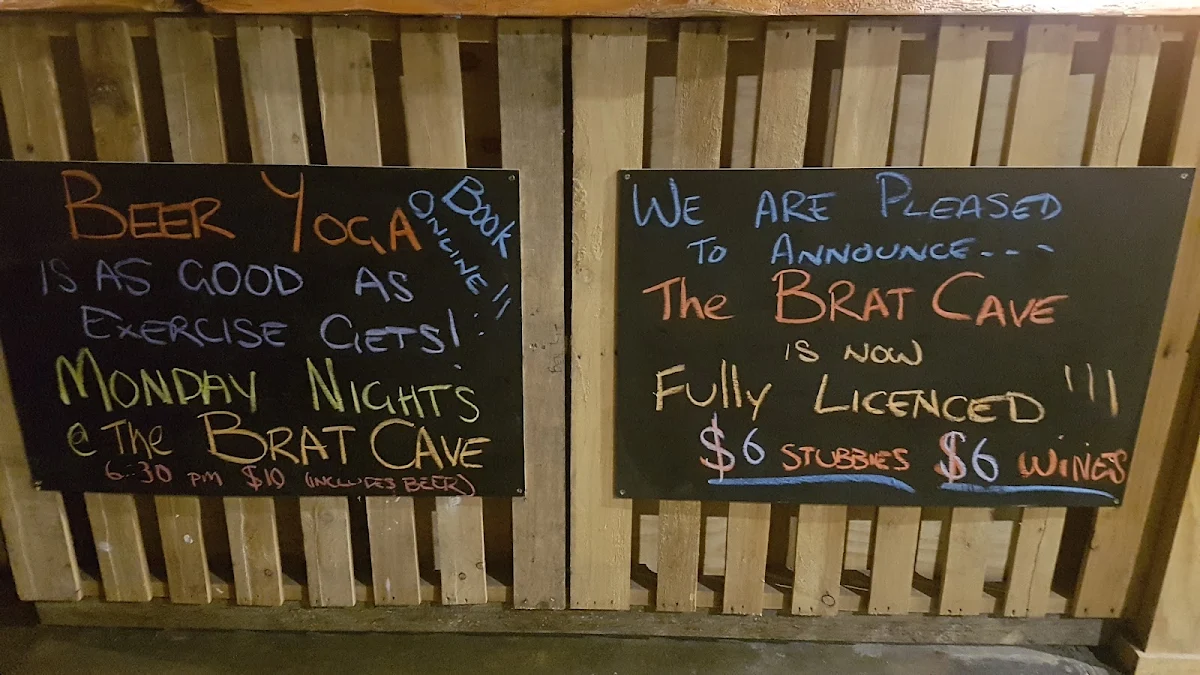 BEER YOGA
BOOK
ONLINE!!
IS AS GOOD AS
EXERCISE GETS!
MONDAY NIGHTS
@ The BRAT CAVE
6:30 pm $10 (INCLUDES BEER)
WE ARE PLEASED
TO ANNOUNCE...
The BRAT CAVE
IS NOW
Fully LICENCED!!!
$6 STUBBIES $6 WiNES